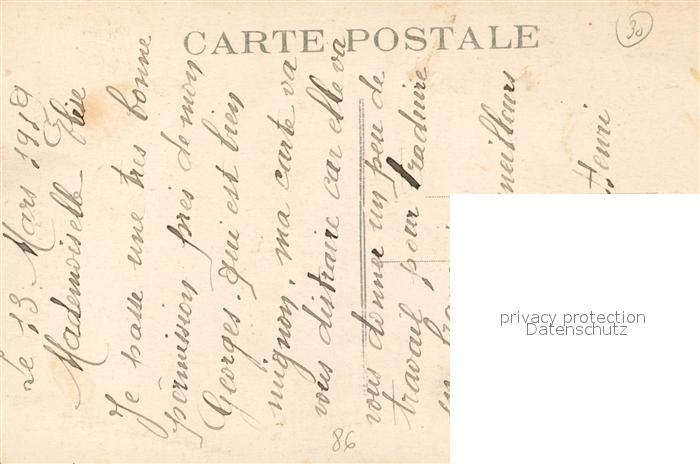 CARTE POSTALE
30
Le 13 Mars 1919
Mademoiselle Elise
Je passe une très bonne
permission près de mon
Georges. qui est bien
mignon, ma carte va
vous distraire car elle va
vous donner un peu de
travail pour traduire
meilleurs
Henri
86
privacy protection
Datenschutz